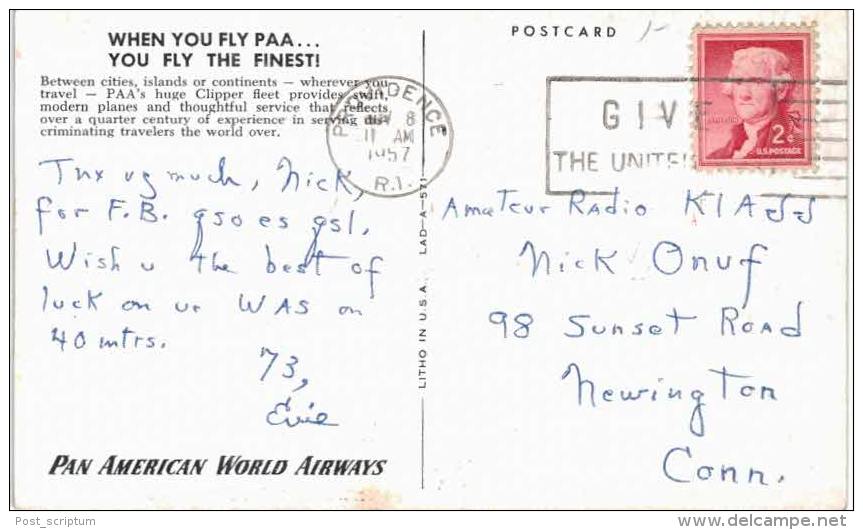 WHEN YOU FLY PAA...
YOU FLY THE FINEST!
Between cities, islands or continents — wherever you
travel — PAA's huge Clipper fleet provides swift,
modern planes and thoughtful service that reflects
over a quarter century of experience in serving dis-
criminating travelers the world over.
Tnx vy much, Nick,
for F.B. qso es qsl.
Wish u the best of
luck on ur WAS on
40 mtrs.
73,
Evie
PAN AMERICAN WORLD AIRWAYS
LITHO IN U.S.A. LAD-A-571
PROVIDENCE
8
11 AM
1957
R.I.
POSTCARD
GIVE
THE UNITED
2¢
U.S. POSTAGE
Amateur Radio
Nick Onuf
98 Sunset Road
Newington
Conn.
Post_scriptum
delcampe.net